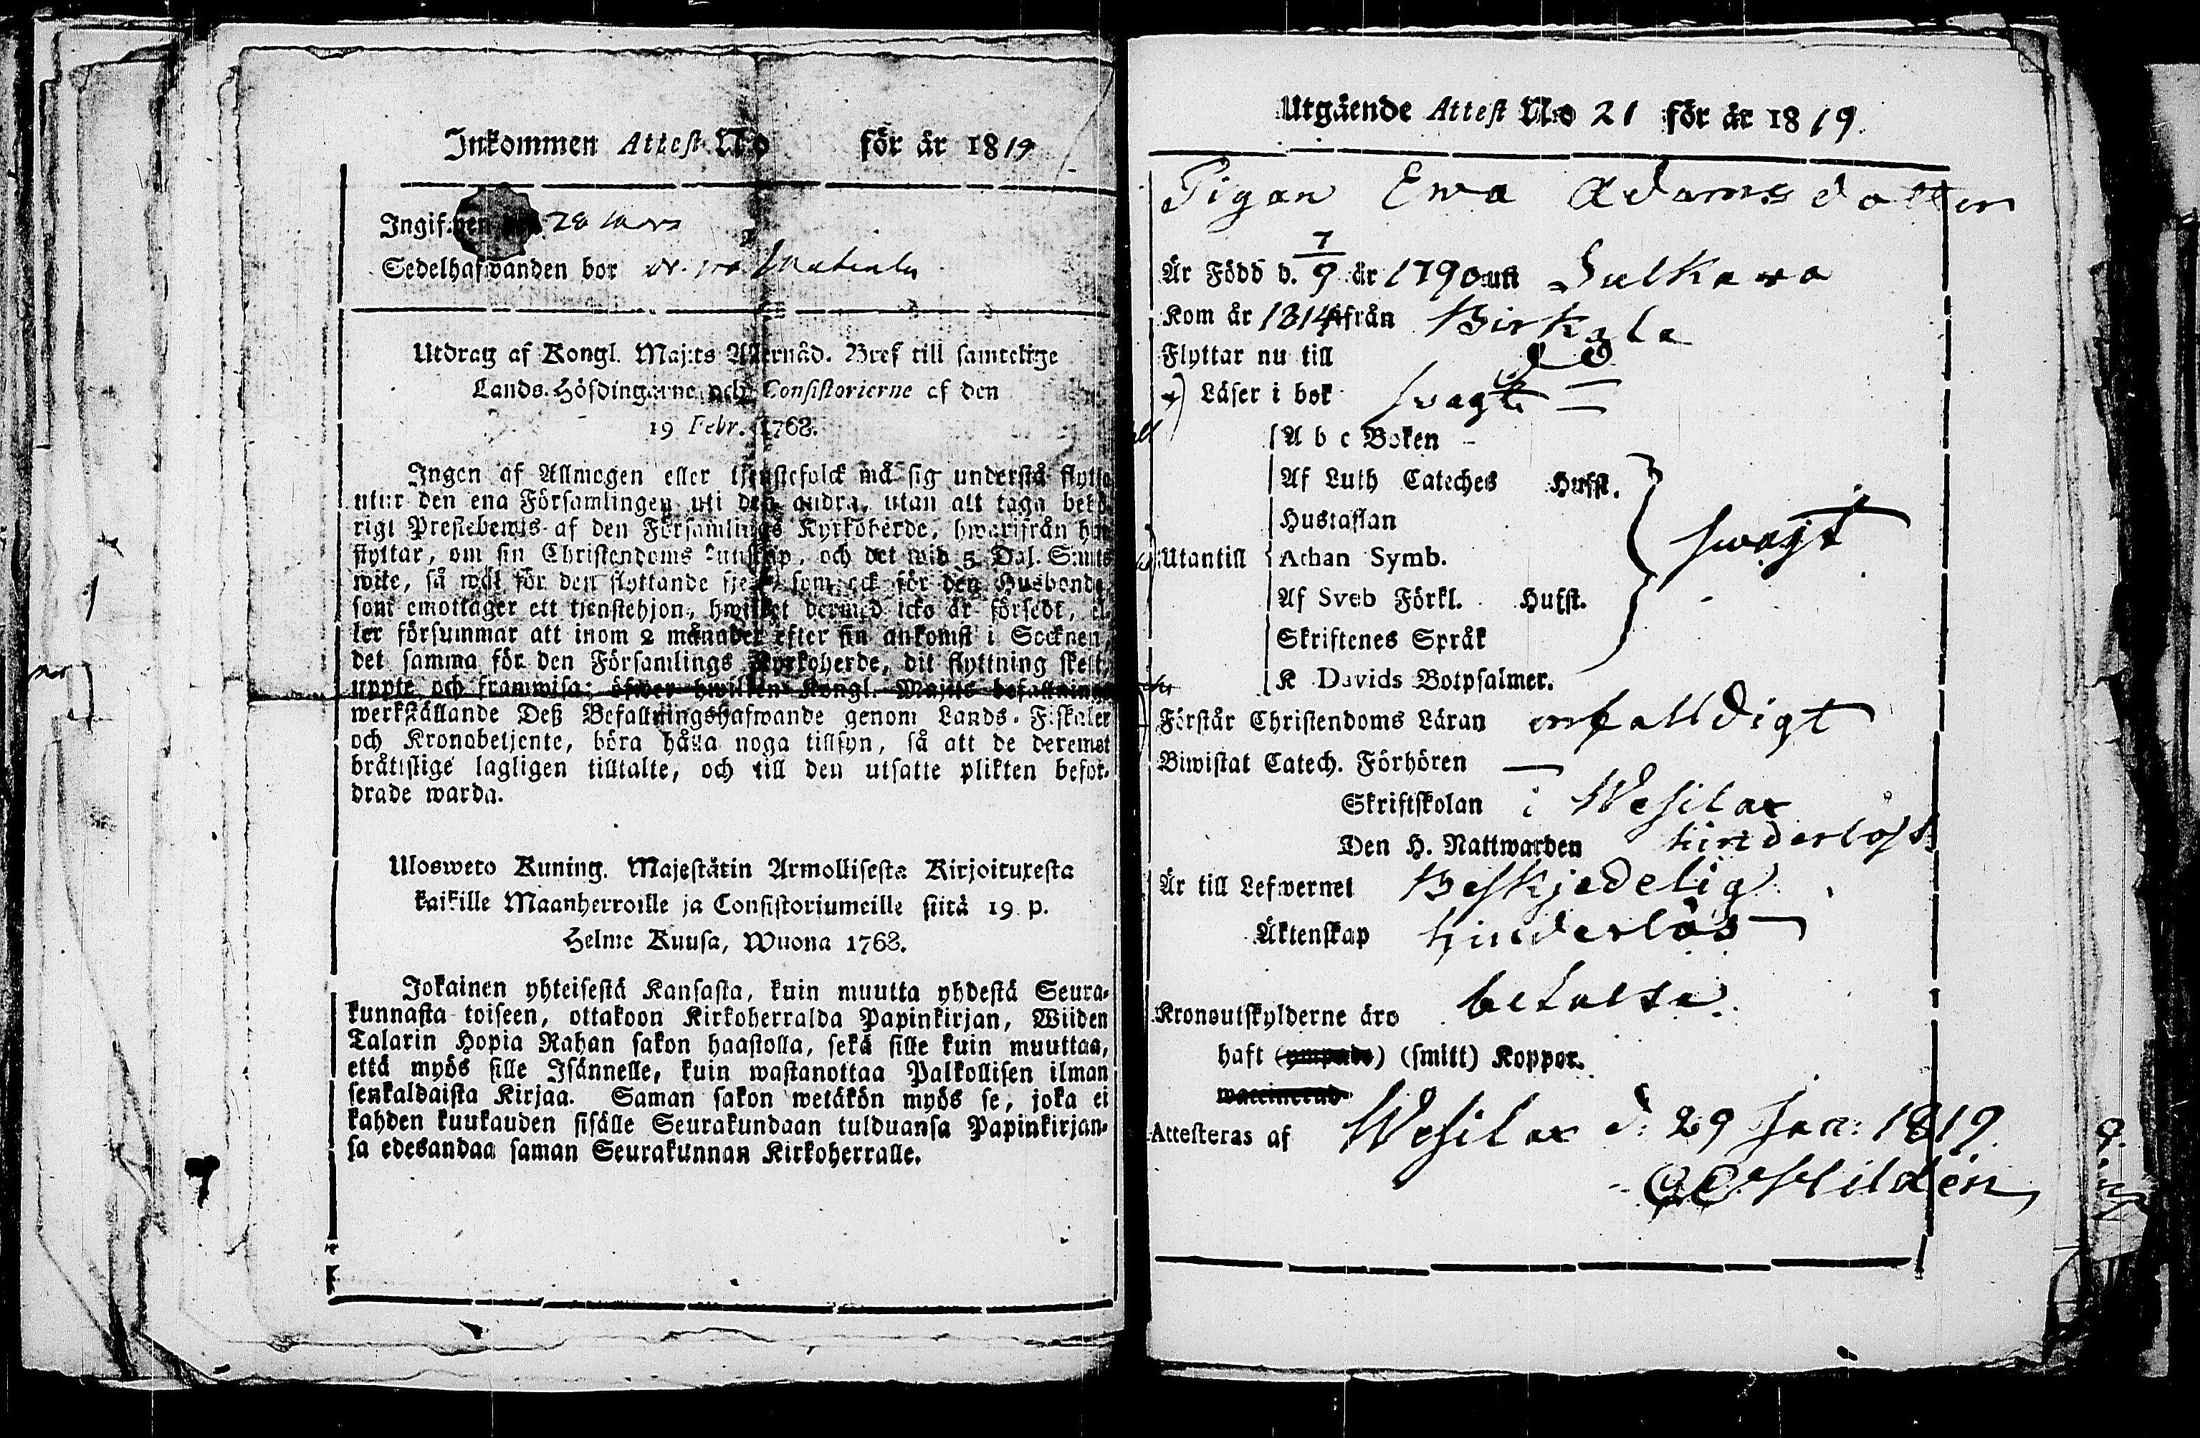 Inkommen Attest N:o för år 1819
Ingifwen 28 Mars
Sedelhafwanden bor
Utdrag af Kongl. Maj:ts Allernåd. Bref till samtelige
Lands-Höfdingarne och Consistorierne af den
19 Febr. 1768.
Ingen af Allmogen eller tjenstefolck må sig understå flytta
utur den ena Församlingen uti den andra, utan att taga behö-
rigt Prestebewis af den Församlings Kyrkoherde, hwarifrån han
flyttar, om sin Christendoms kunskap, och det wid 5 Dal. S:mts
wite, så wäl för den flyttande sjelf, som ock för den Husbonde,
som emottager ett tjenstehjon, hwilket dermed icke är försedt, el-
ler försummar att inom 2 månader efter sin ankomst i Socknen,
det samma för den Församlings Kyrkoherde, dit flyttning skett,
uppte och framwisa; öfwer hwilken Kongl. Maj:ts befallnings
werkställande Deß Befallningshafwande genom Lands-Fiskaler
och Kronobetjente, böra hålla noga tillsyn, så att de deremot
bråttslige lagligen tilltalte, och till den utsatte plikten befor-
drade warda.
Ulosweto Kuning. Majestätin Armollisesta Kirjoituxesta
kaikille Maanherroille ja Consistoriumeille siitä 19 p.
Helme Kuusa, Wuona 1768.
Jokainen yhteisestä Kansasta, kuin muutta yhdestä Seura-
kunnasta toiseen, ottakoon Kirkoherralda Papinkirjan, Wiiden
Talarin Hopia Rahan sakon haastolla, sekä sille kuin muuttaa,
että myös sille Isännelle, kuin wastanottaa Palkollisen ilman
senkaldaista Kirjaa. Saman sakon wetäkön myös se, joka ei
kahden kuukauden sisälle Seurakundaan tulduansa Papinkirjan-
sa edesandaa saman Seurakunnan Kirkoherralle.
Utgående Attest N:o 21 för år 1819.
Pigan Ewa Adamsdotter
Är Född d. 7/9 år 1790 uti Sulkawa
Kom år 1814 ifrån Birkala
Flyttar nu till
Läser i bok swagt
A b c Boken
Af Luth Cateches Hufst.
Hustaflan
Utantill Athan Symb. swagt
Af Sveb Förkl. Hufst.
Skriftenes Språk
K Davids Botpsalmer.
Förstår Christendoms Läran enfalldigt
Biwistat Catech. Förhören
Skriftskolan i Wesilax
Den H. Nattwarden hinderlöst
Är till Lefwernet Beskjedelig
Äktenskap hinderlös
Kronoutskylderne äro betalta
haft (ympade) (smitt) Koppor.
waccinerad
Attesteras af Wesilax d: 29 Jan: 1819.
Hildén